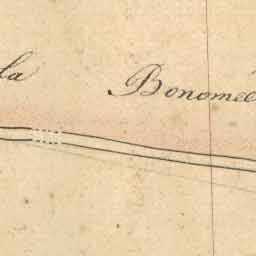 la Bonomeé